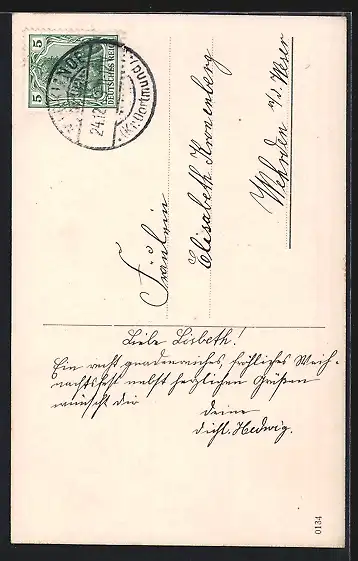 5 DEUTSCHES REICH 5
24.12
(Kr. Dortmund)
Fräulein
Elisabeth Kronenberg
Wehrden a/d. Weser
Liebe Lisbeth!
Ein recht gnadenreiches, fröhliches Weih-
nachtsfest nebst herzlichen Grüßen
wünscht dir deine
Hedwig.
0134